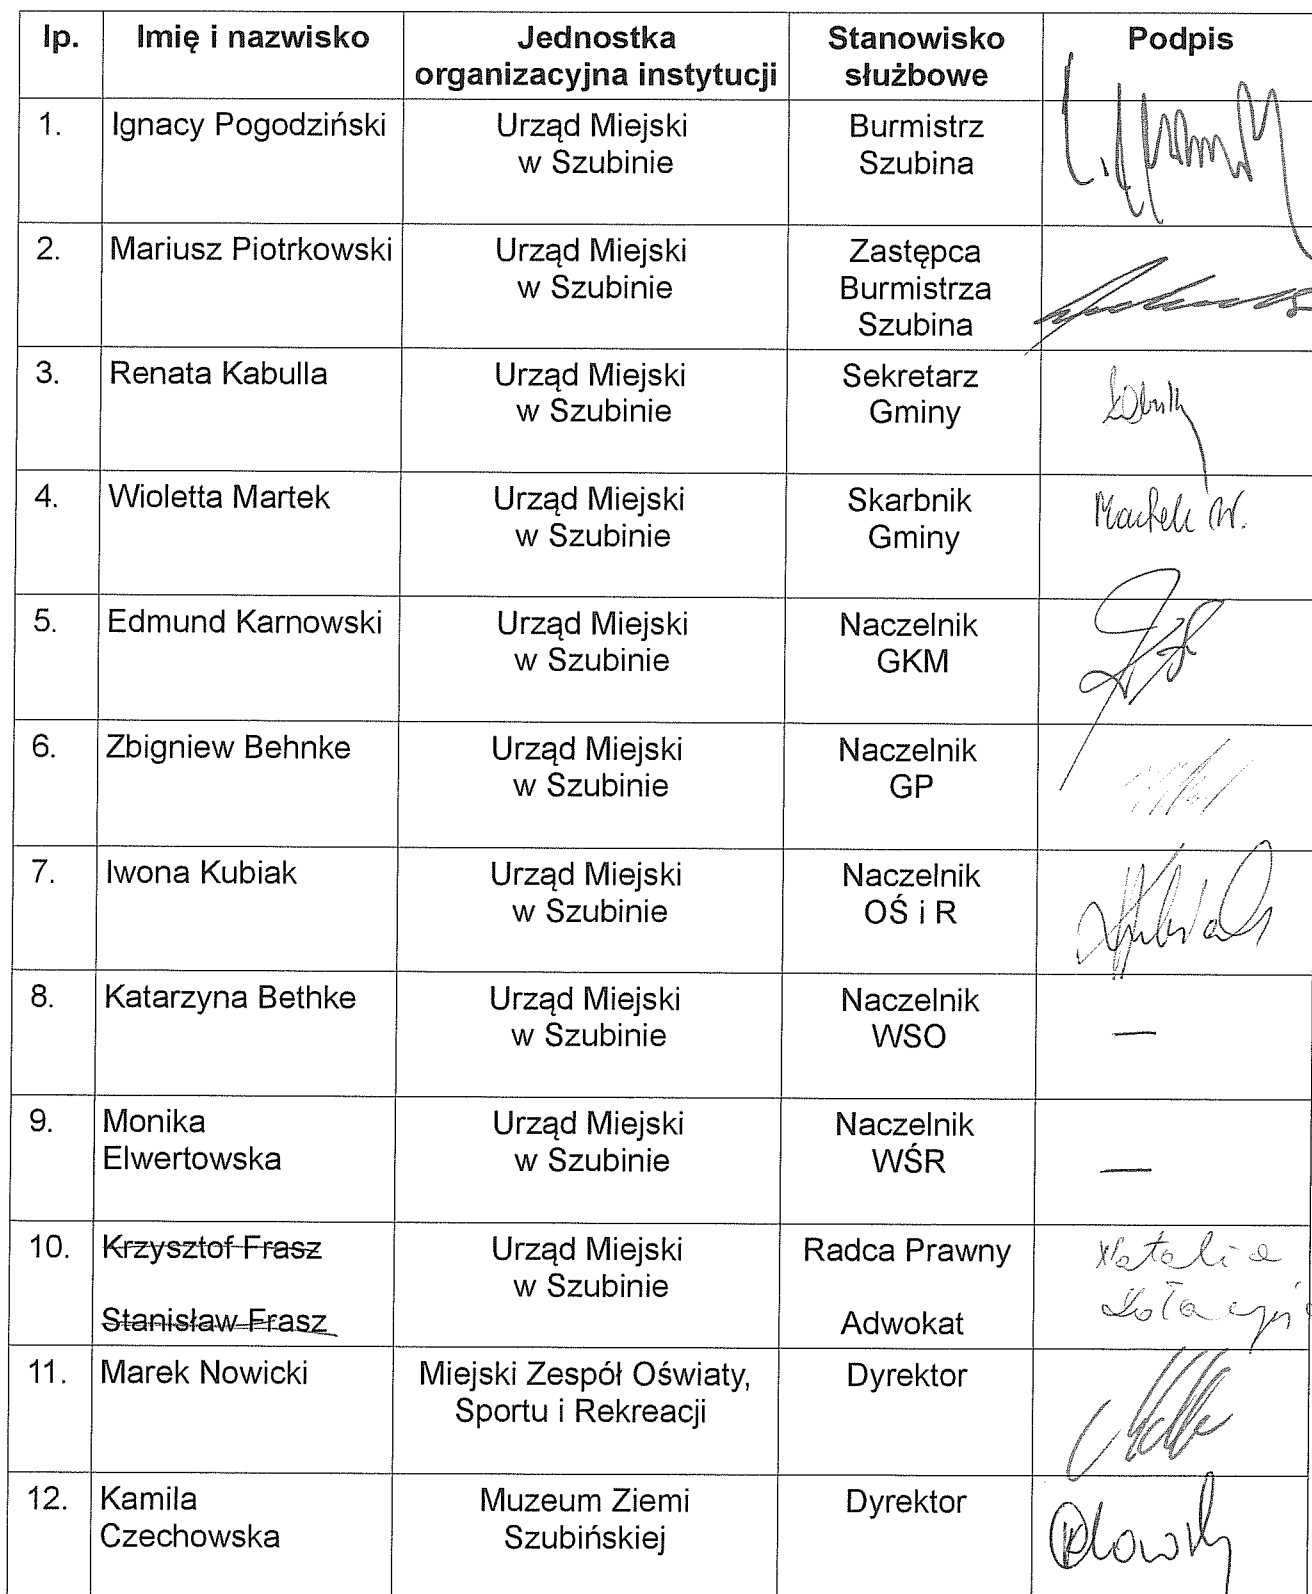 lp.
Imię i nazwisko
Jednostka
organizacyjna instytucji
Stanowisko
służbowe
Podpis
1.
Ignacy Pogodziński
Urząd Miejski
w Szubinie
Burmistrz
Szubina
2.
Mariusz Piotrkowski
Urząd Miejski
w Szubinie
Zastępca
Burmistrza
Szubina
3.
Renata Kabulla
Urząd Miejski
w Szubinie
Sekretarz
Gminy
4.
Wioletta Martek
Urząd Miejski
w Szubinie
Skarbnik
Gminy
Martek W.
5.
Edmund Karnowski
Urząd Miejski
w Szubinie
Naczelnik
GKM
6.
Zbigniew Behnke
Urząd Miejski
w Szubinie
Naczelnik
GP
7.
Iwona Kubiak
Urząd Miejski
w Szubinie
Naczelnik
OŚ i R
8.
Katarzyna Bethke
Urząd Miejski
w Szubinie
Naczelnik
WSO
—
9.
Monika
Elwertowska
Urząd Miejski
w Szubinie
Naczelnik
WŚR
—
10.
Krzysztof Frasz
Stanisław Frasz
Urząd Miejski
w Szubinie
Radca Prawny
Adwokat
Natalia
11.
Marek Nowicki
Miejski Zespół Oświaty,
Sportu i Rekreacji
Dyrektor
12.
Kamila
Czechowska
Muzeum Ziemi
Szubińskiej
Dyrektor